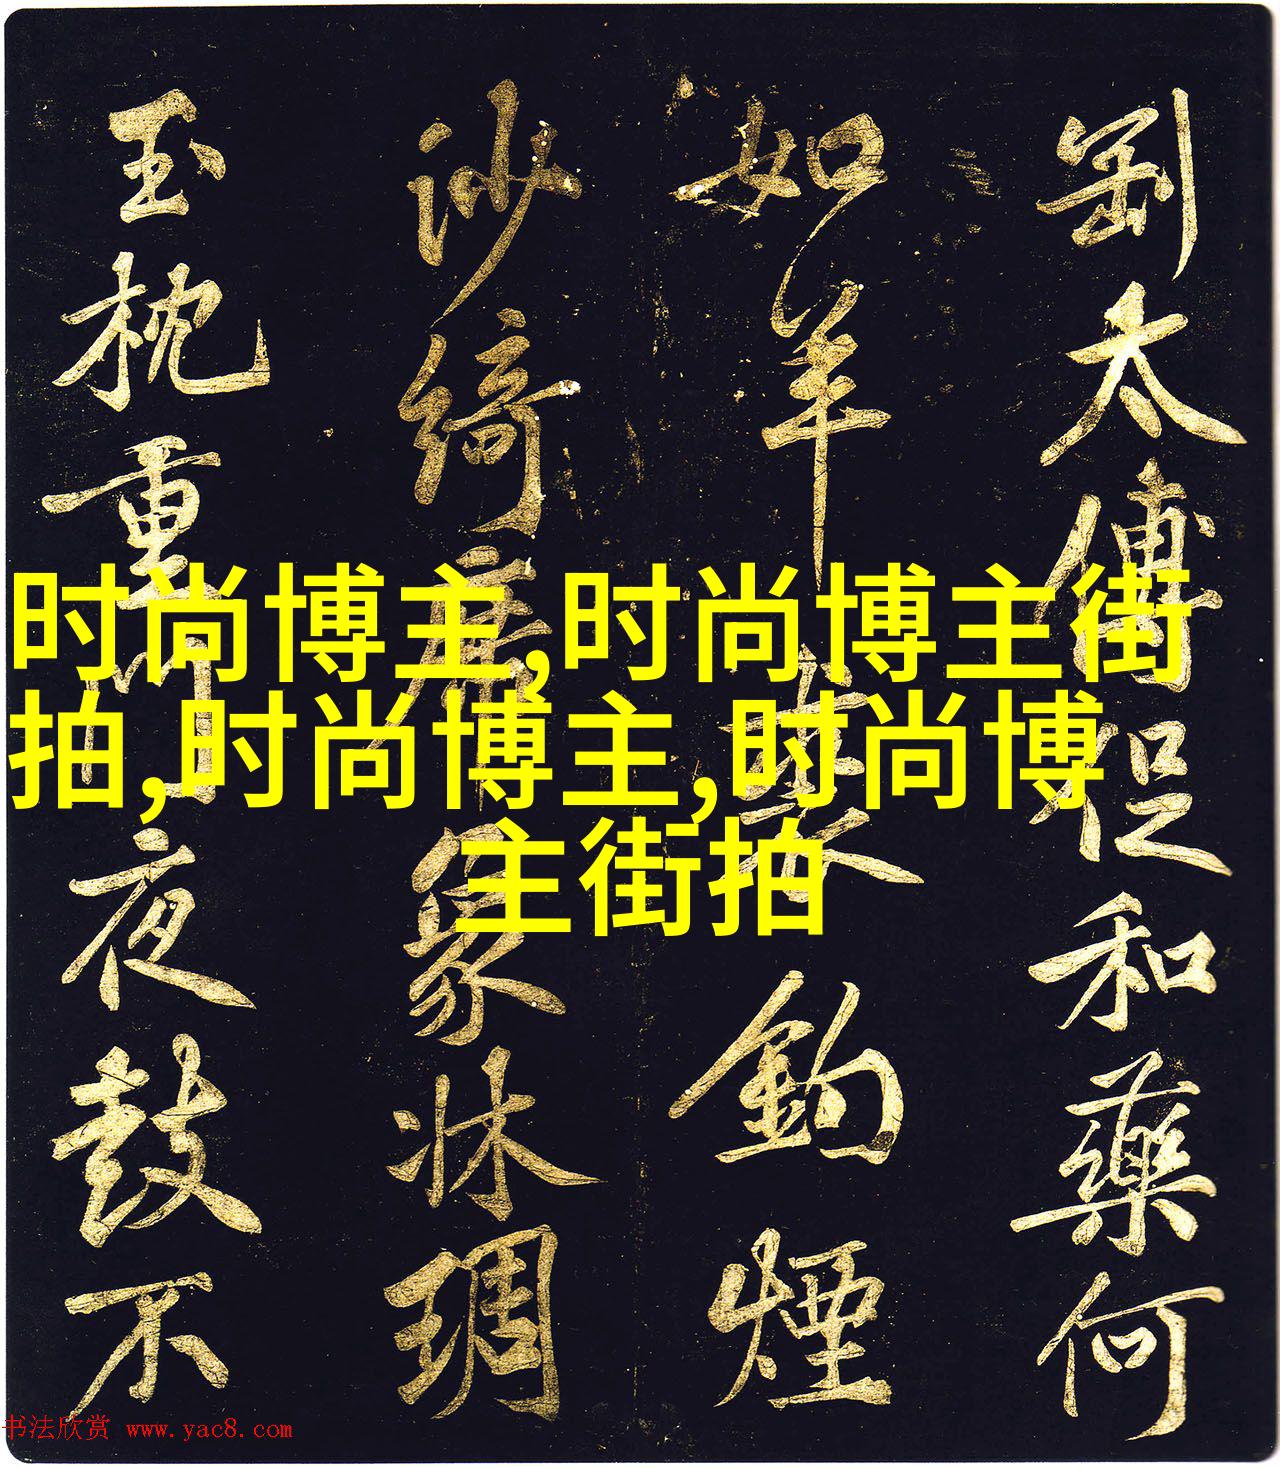 太傅促和藥何
如羊裘鈎煙
沙綺席象牀琱
玉枕重門夜鼓不
时尚博主,时尚博主街
拍,时尚博主,时尚博
主街拍
书法欣赏 www.yac8.com